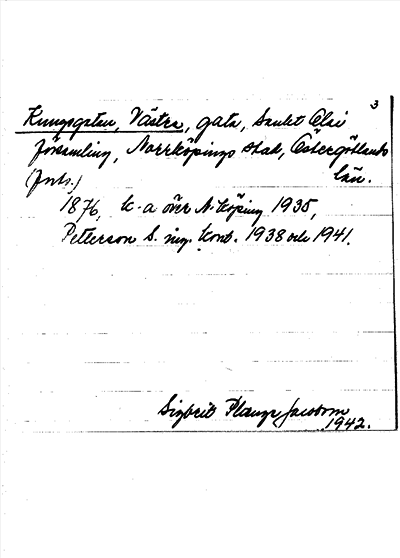 3
Kungsgatan, Västra, gata, Sankt Olai
församling, Norrköpings stad, Östergötlands
(forts.) län.
1876, k-a över N-köping 1935,
Petterson S. ing. kont. 1938 och 1941.
Sigbrit Plænge Jacobson
1942.